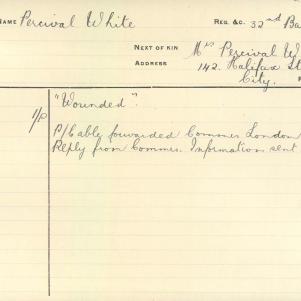 NAME Percival White REG. &C. 32nd Ba
NEXT OF KIN Mrs Percival W
ADDRESS 142. Halifax St
City.
"Wounded".
P/C ably forwarded Commrs London
Reply from Commrs. Information sent